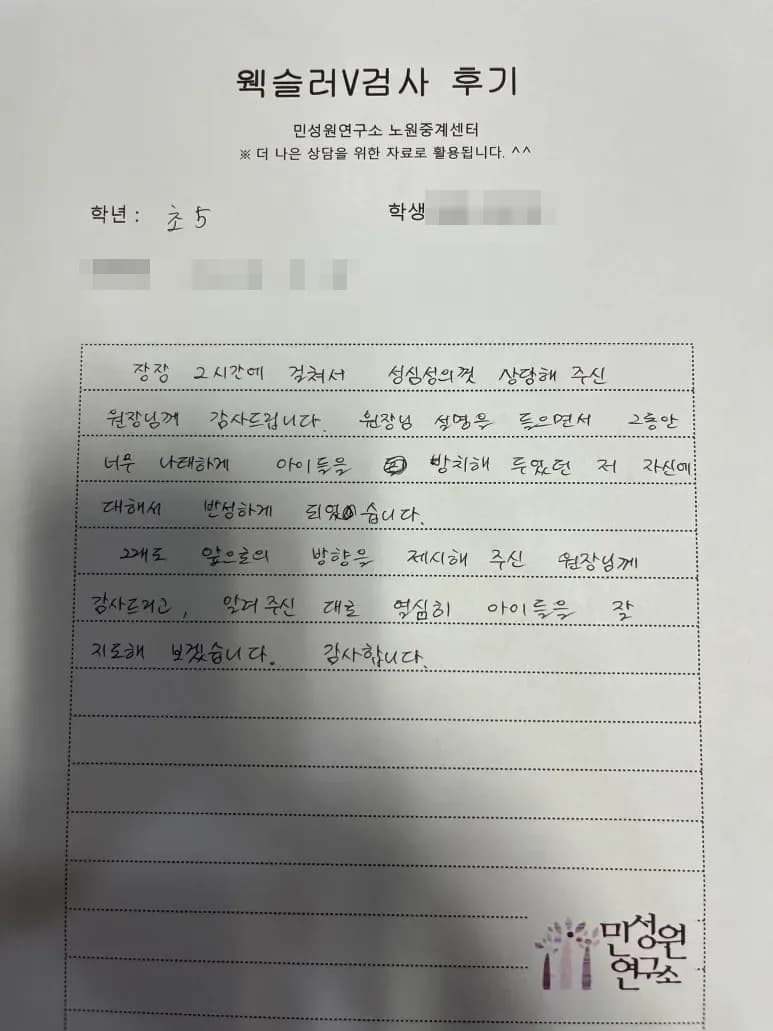 웩슬러V검사 후기
민성원연구소 노원중계센터
※ 더 나은 상담을 위한 자료로 활용됩니다. ^^
학년 : 초5 학생
장장 2시간에 걸쳐서 성심성의껏 상담해 주신
원장님께 감사드립니다. 원장님 설명을 들으면서 그동안
너무 나태하게 아이들을 방치해 두었던 저 자신에
대해서 반성하게 되었습니다.
그대로 앞으로의 방향을 제시해 주신 원장님께
감사드리고, 알려 주신 대로 열심히 아이들을 잘
지도해 보겠습니다. 감사합니다.
민성원
연구소